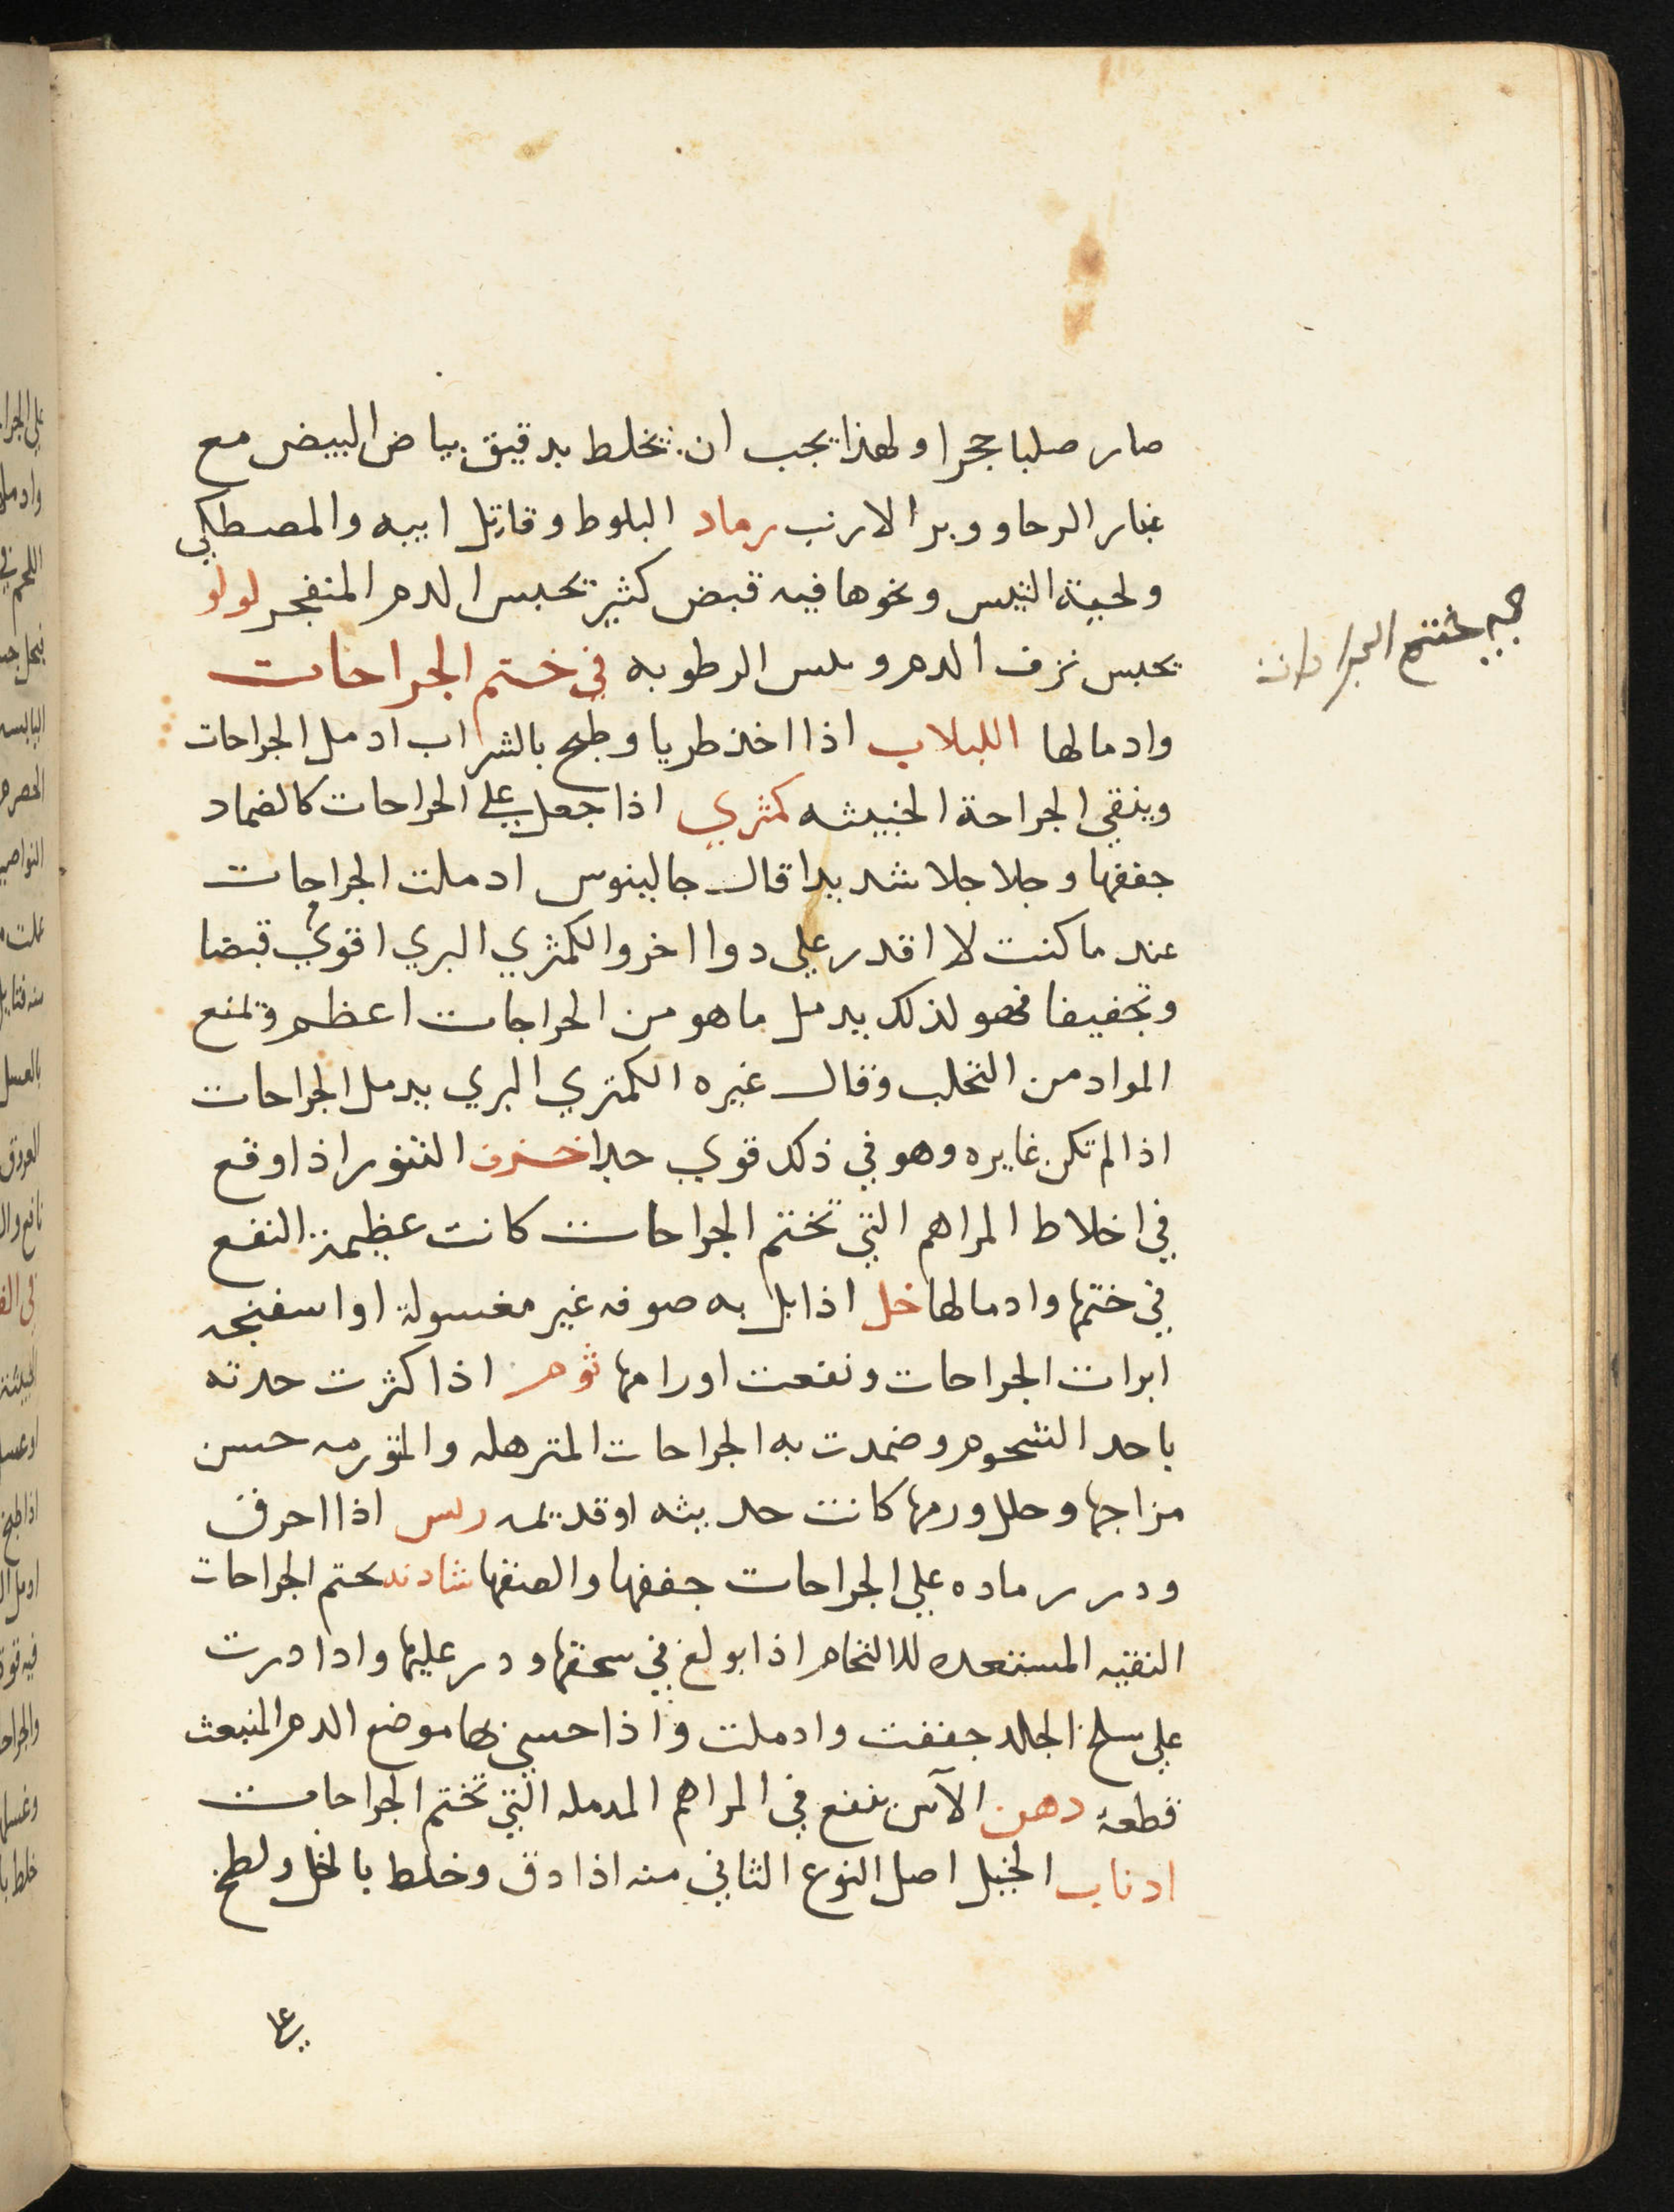 صار صلبا حجرا ولهذا يجب ان يخلط بدقيق بياض البيض مع
غبار الرحا ووبر الارنب رماد البلوط وقاتل ابيه والمصطكي
ولحية التيس ونحوها فيه قبض كثير يحبس الدم المنفجر لولو
يحبس نزف الدم و الرطوبه في ختم الجراحات
وادمالها اللبلاب اذا اخذ طريا وطبخ بالشراب ادمل الجراحات
وينقي الجراحة الخبيثه كمثري اذا جعل علي الجراحات كالضماد
جففها وجلا جلا شديدا قال جالينوس ادملت الجراحات
عند ما كنت لا اقدر علي دوا اخر والكمثري البري اقوي قبضا
وتجفيفا فهو لذلك يدمل ما هو من الجراحات اعظم وتمنع
المواد من التحلب وقال غيره الكمثري البري يدمل الجراحات
اذا لم تكن غايره وهو في ذلك قوي جدا خزف التنور اذا وقع
في اخلاط المراهم التي تختم الجراحات كانت عظيمة النفع
في ختمها وادمالها خل اذا بل به صوفه غير مغسولة او اسفنجه
ابرات الجراحات ونفعت اورامها ثوم اذا كثرت حدته
باحد الشحوم وضمدت به الجراحات المترهله والمتورمه حسن
مزاجها وحلل ورمها كانت حديثه او قديمه ريس اذا احرق
ودر رماده علي الجراحات جففها والصقها شادنه يختم الجراحات
النقيه المستعده للالتحام اذا بولغ في سحقها ودر عليها واذا درت
علي سلخ الجلد جففت وادملت واذا حسي بها موضع الدم المنبعث
قطعه دهن الآس ينفع في المراهم المدمله التي تختم الجراحات
ادناب الخيل اصل النوع الثاني منه اذا دق وخلط بالخل ولطخ
ختم الجراحات